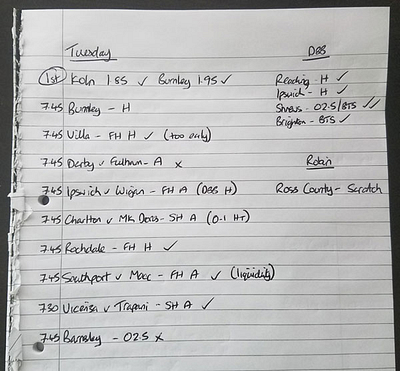 Tuesday
DBS
1st Koln 1.85 ✓ Burnley 1.95 ✓
Reading - H ✓
Ipswich - H ✓
Shrews - O2.5/BTS ✓✓
Brighton - BTS ✓
7.45 Burnley - H
7.45 Villa - FH H ✓ (too early)
7.45 Derby v Fulham - A x
Robin
7.45 Ipswich v Wigan - FH A (DBS H)
Ross County - Scratch
7.45 Charlton v MK Dons - SH A (0-1 HT)
7.45 Rochdale - FH H ✓
7.45 Southport v Macc - FH A ✓ (liquidity)
7.30 Vicenza v Trapani - SH A ✓
7.45 Barnsley - O2.5 x